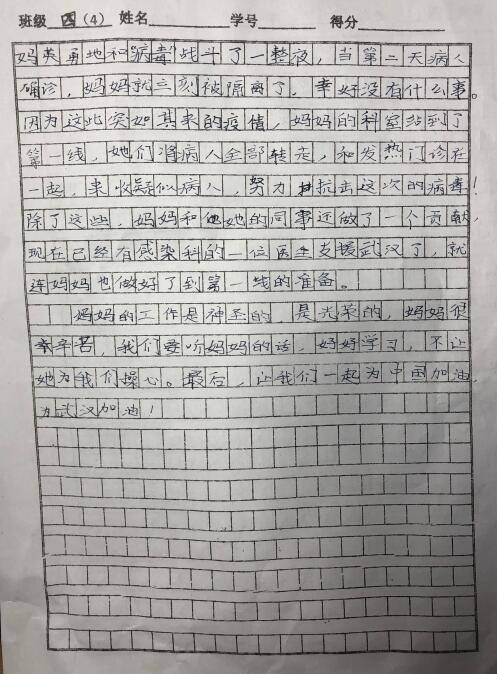 班级 四 (4) 姓名 学号 得分
妈英勇地和“病毒”战斗了一整夜，当第二天病人
确诊，妈妈就立刻被隔离了，幸好没有什么事。
因为这此突如其来的疫情，妈妈的科室站到了
第一线，她们将病人全部转走，和发热门诊在
一起，来收疑似病人，努力抗击这次的病毒！
除了这些，妈妈和她的同事还做了一个贡献，
现在已经有感染科的一位医生支援武汉了，就
连妈妈也做好了到第一线的准备。
妈妈的工作是神圣的，是光荣的，妈妈很
辛苦，我们要听妈妈的话，好好学习，不让
她为我们操心。最后，让我们一起为中国加油，
为武汉加油！